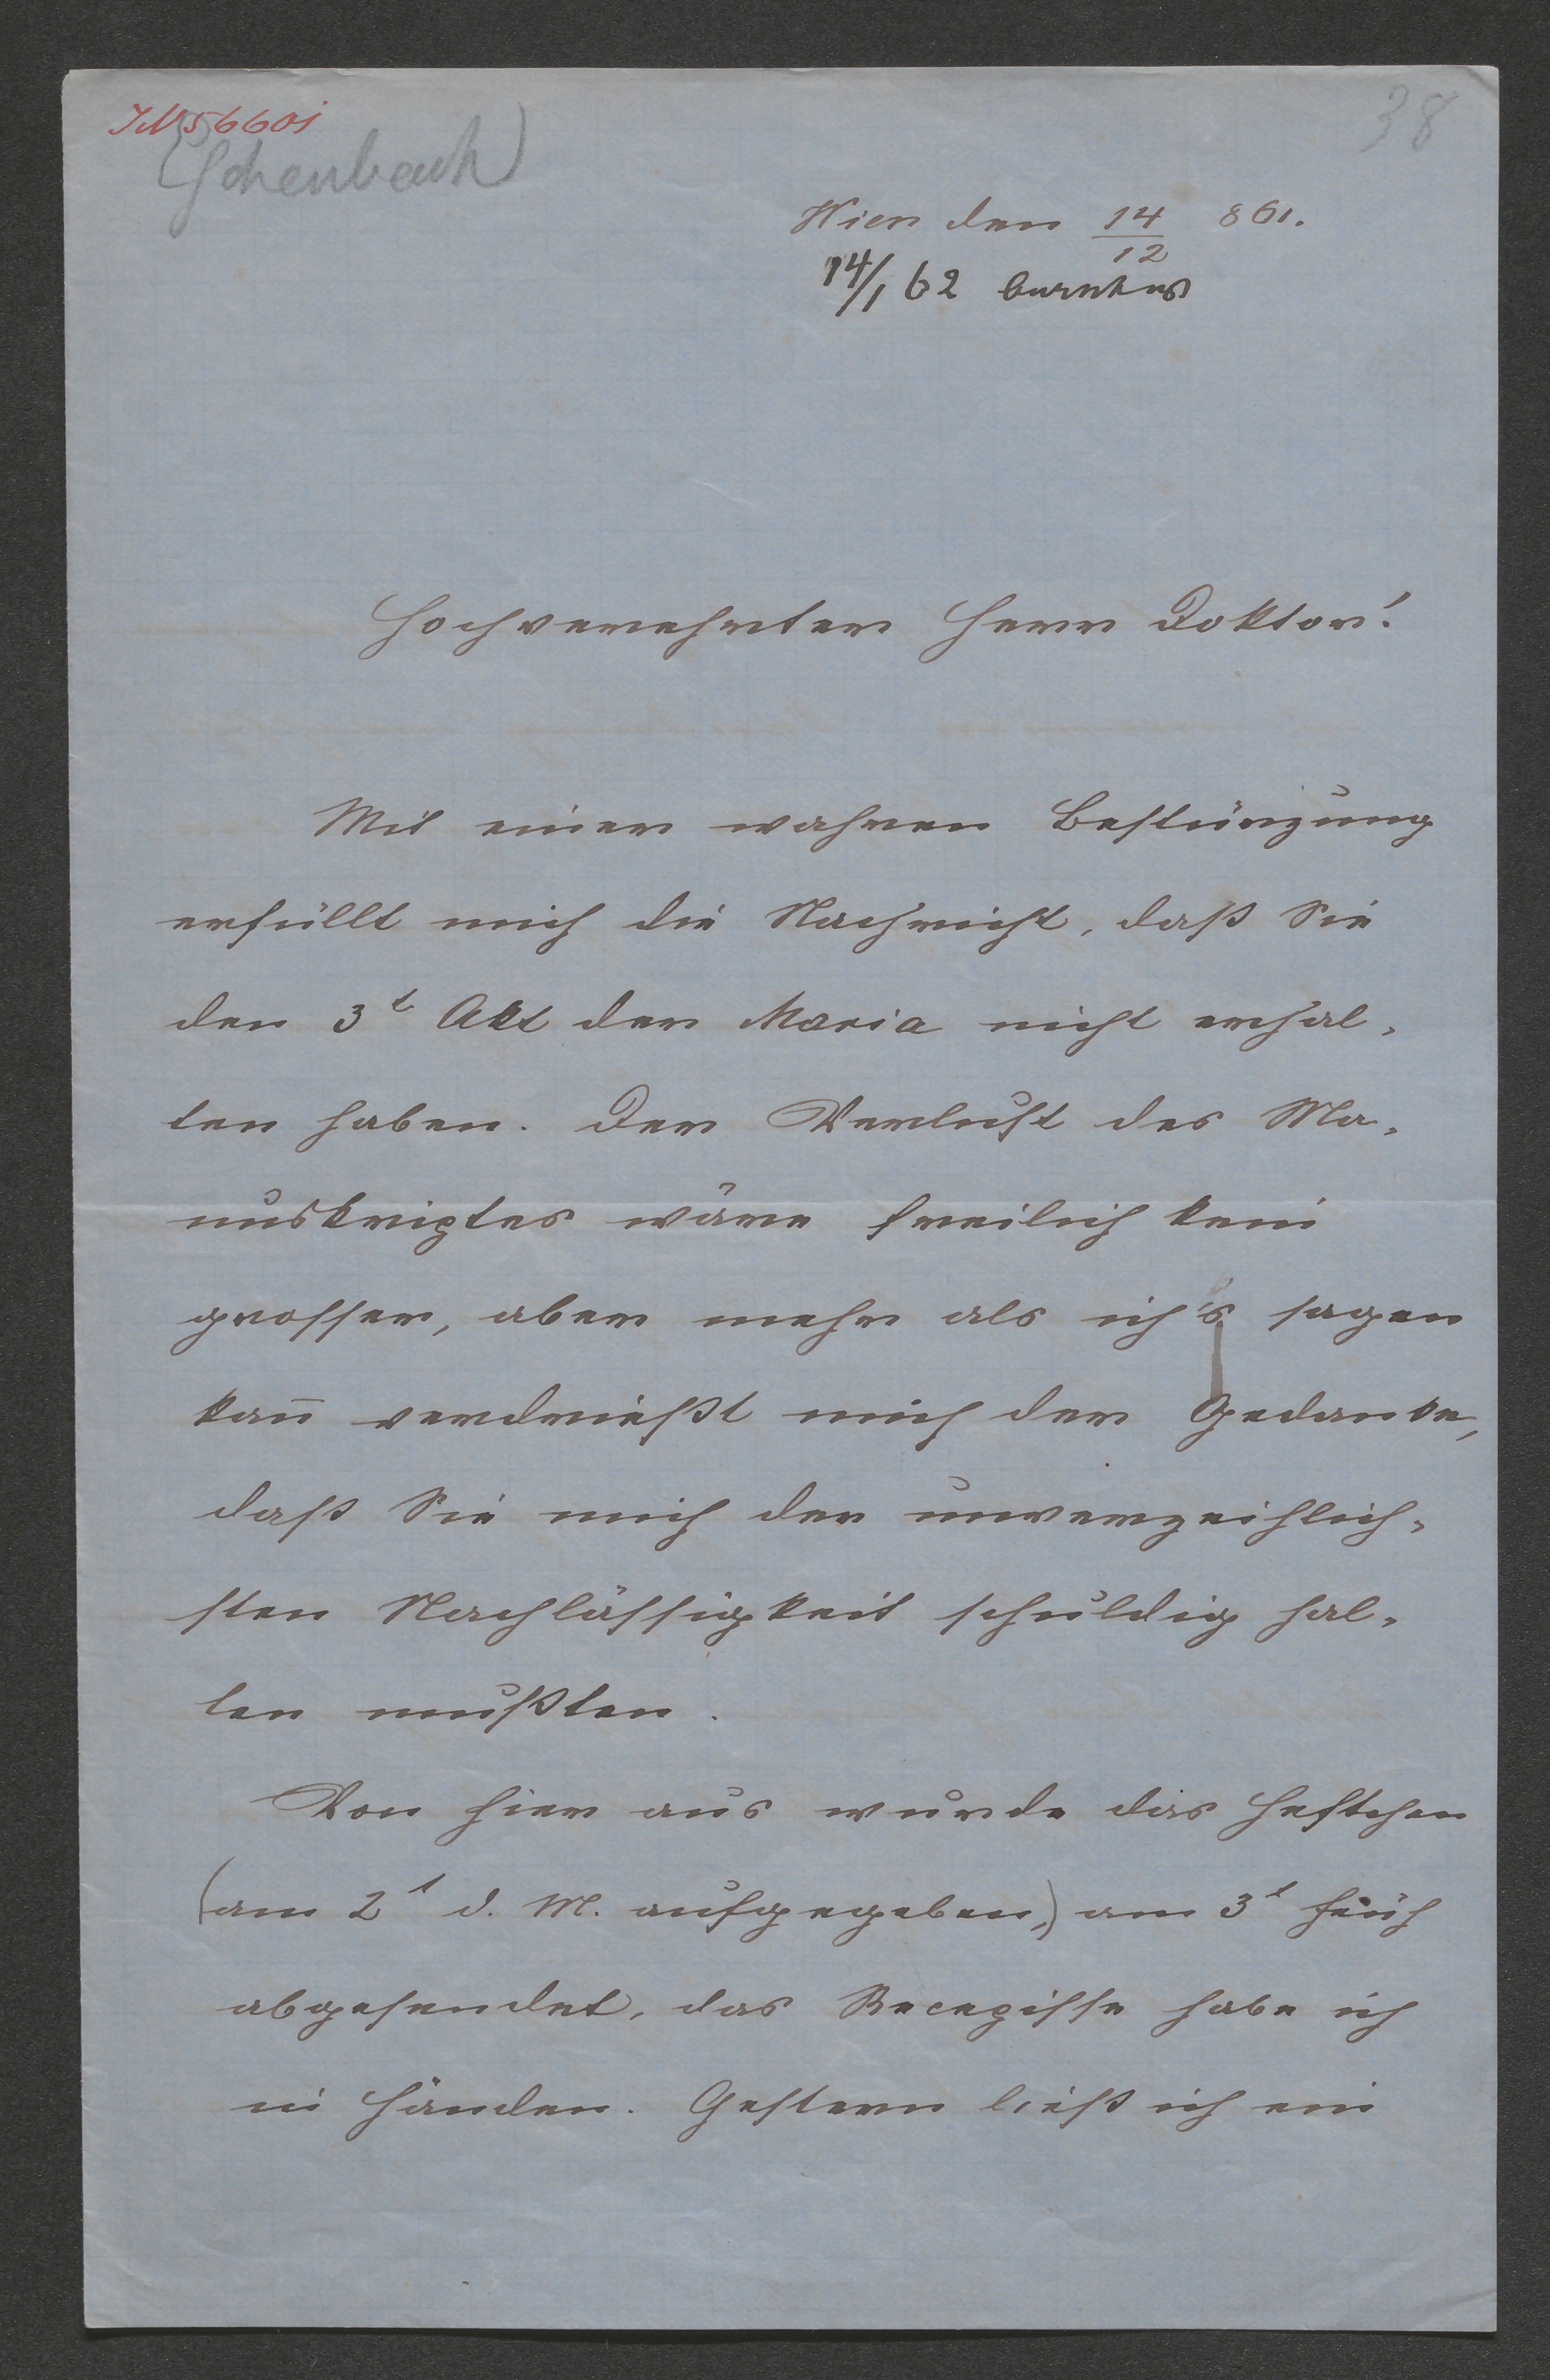 IN 56601
(Eschenbach)
38
Wien den 14/12 861.
14/1 62
Hochverehrter Herr Doktor!
Mit einer wahren Bestürzung
erfüllt mich die Nachricht, daß Sie
den 3t Akt der Maria nicht erhal-
ten haben. Der Verlust des Ma-
nuskriptes wäre freilich kein
grosser, aber mehr als ich's sagen
kan̄ verdrießt mich der Gedanke,
daß Sie mich der unverzeihlich-
sten Nachlässigkeit schuldig hal-
ten mußten.
Von hier aus wurde das Heftchen
(am 2t d. M. aufgegeben,) am 3t früh
abgesendet, das Recepisse habe ich
in Händen. Gestern ließ ich ein